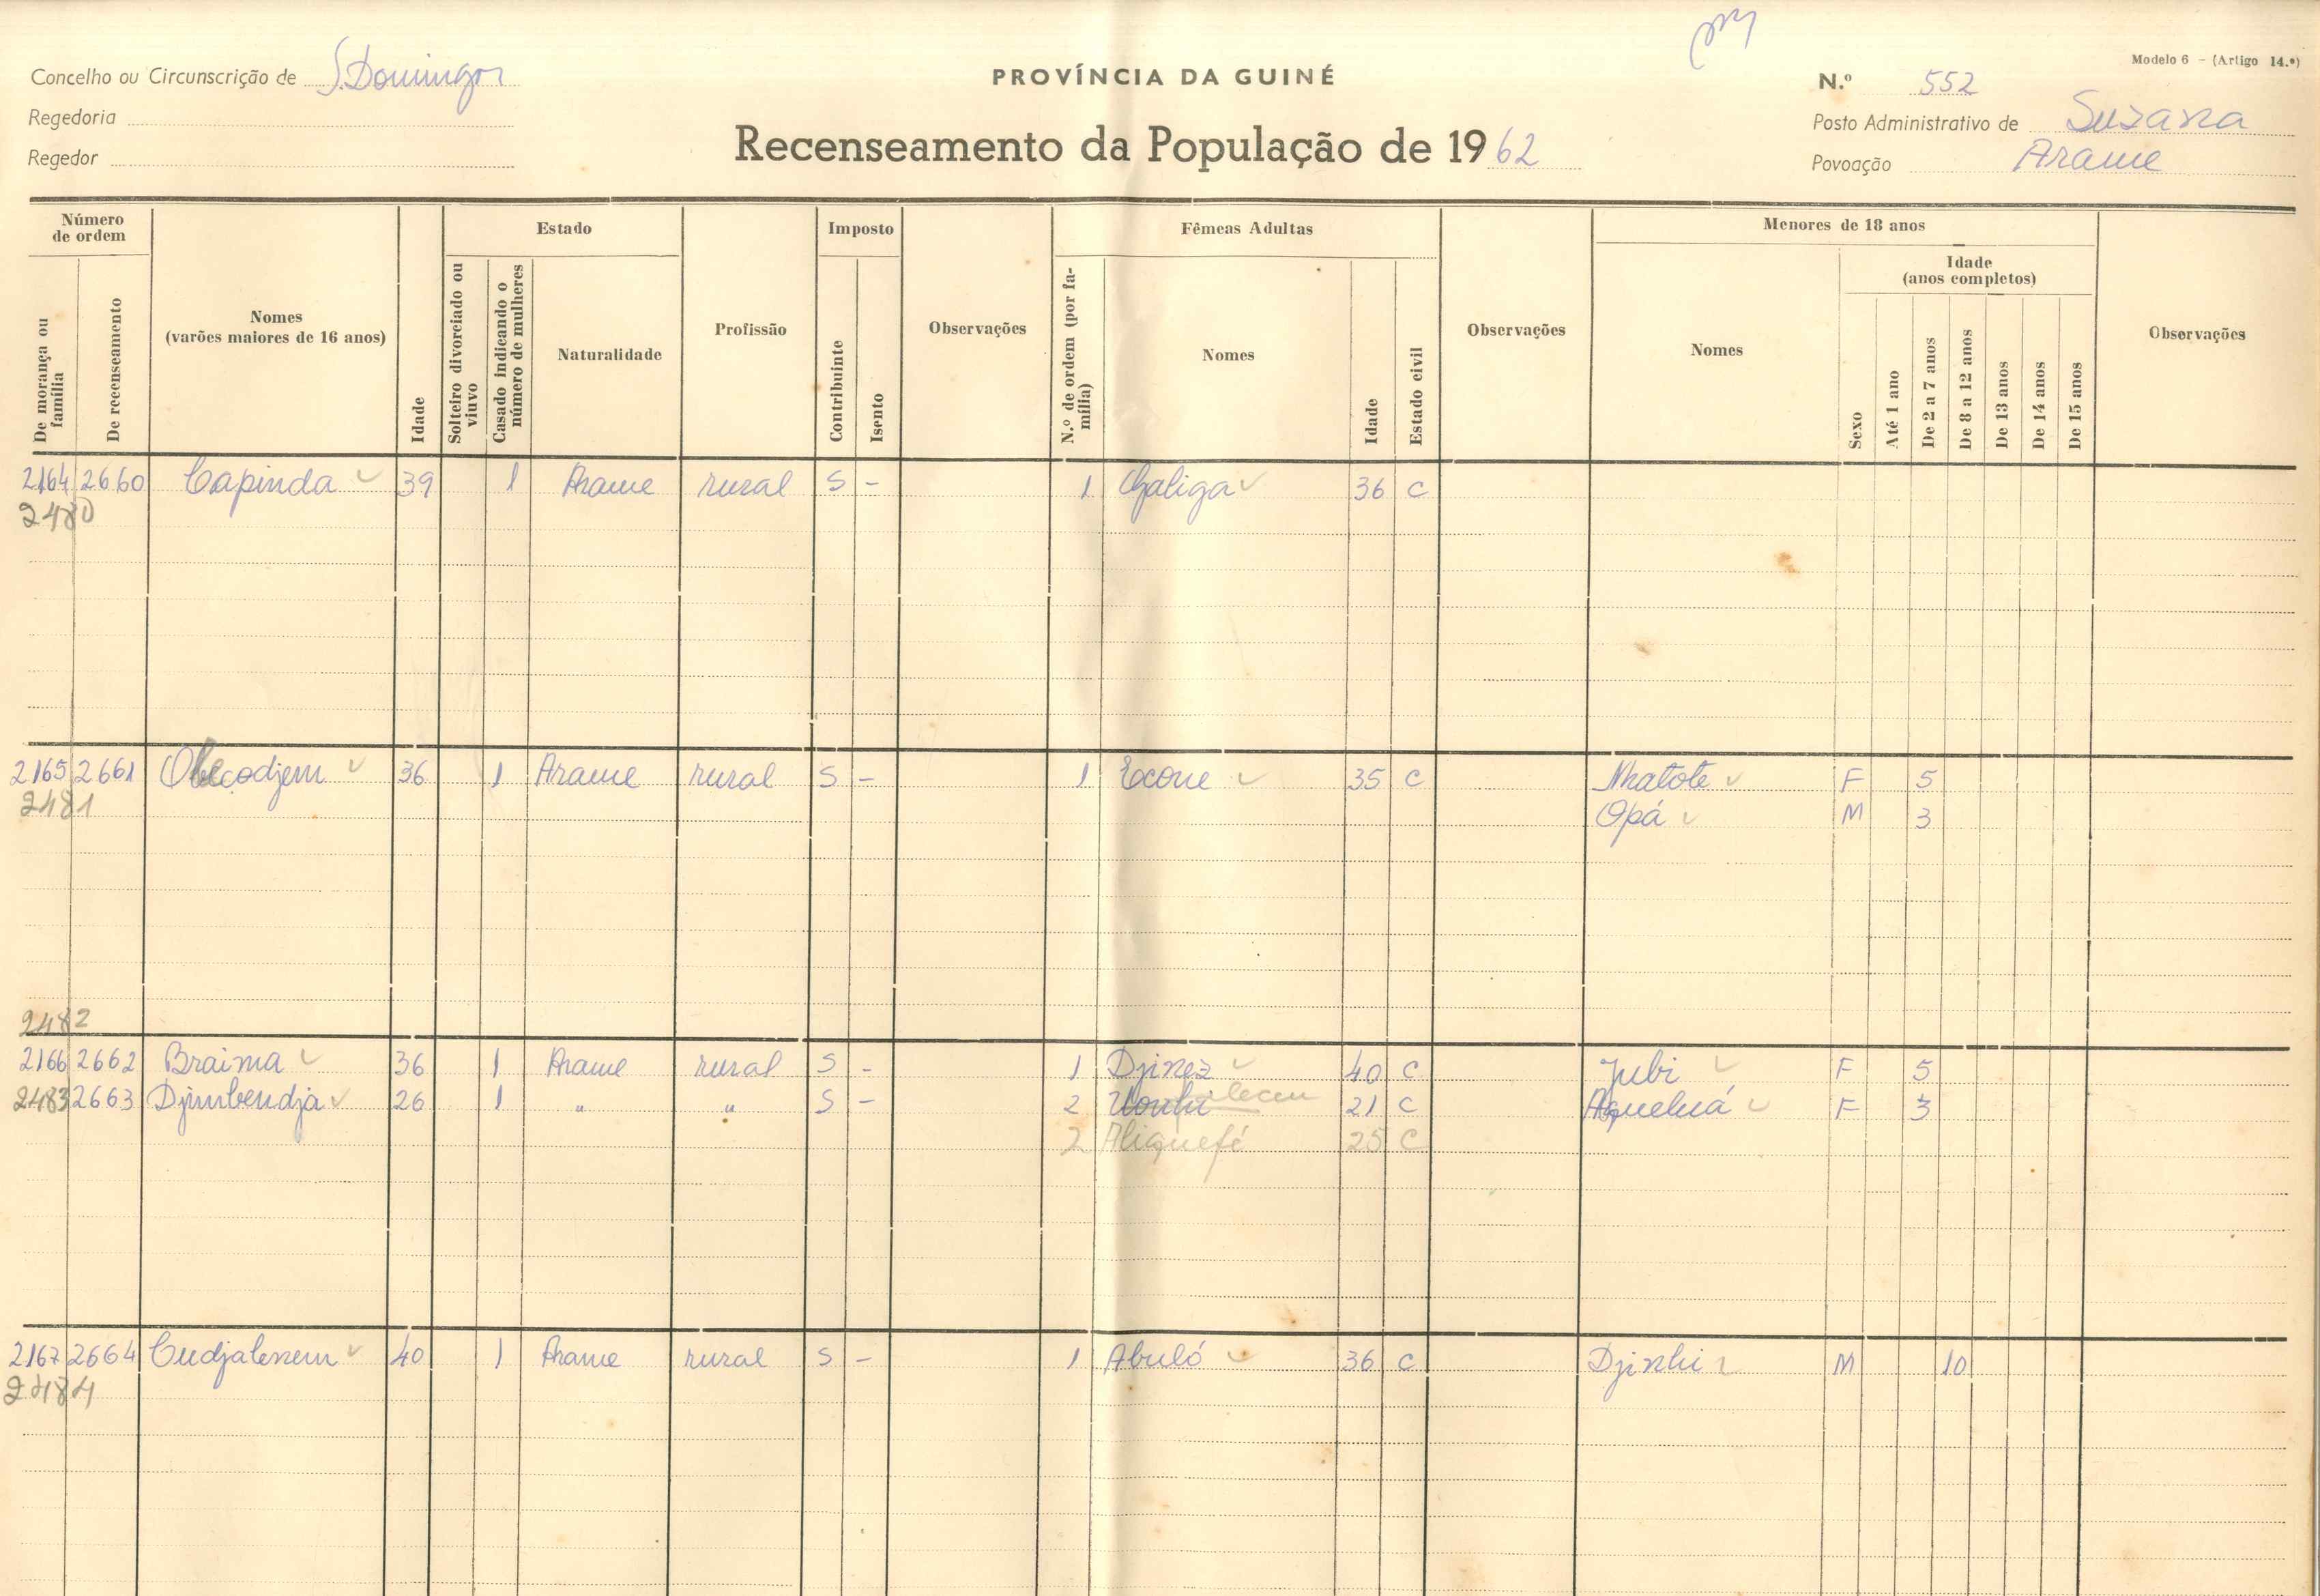 Modelo 6 - (Artigo 14.º)
Concelho ou Circunscrição de S. Domingos
PROVÍNCIA DA GUINÉ
N.º 552
Regedoria
Posto Administrativo de Suzana
Recenseamento da População de 1962
Regedor
Povoação Arame
Número de ordem
De morança ou família
De recenseamento
Nomes
(varões maiores de 16 anos)
Idade
Estado
Solteiro divorciado ou viuvo
Casado indicando o número de mulheres
Naturalidade
Profissão
Imposto
Contribuinte
Isento
Observações
Fêmeas Adultas
N.º de ordem (por família)
Nomes
Idade
Estado civil
Observações
Menores de 18 anos
Nomes
Sexo
Idade
(anos completos)
Até 1 ano
De 2 a 7 anos
De 8 a 12 anos
De 13 anos
De 14 anos
De 15 anos
Observações
2164 2660 Capinda 39 1 Arame rural S - 1 Galiga 36 C
2480
2165 2661 Obecodjem 36 1 Arame rural S - 1 Excone 35 C Nhatote F 5
2481 Opá M 3
2482
2166 2662 Braima 36 1 Arame rural S - 1 Djinez 40 C Jubi F 5
2483 2663 Djimbendja 26 1 " " S - 2 21 C Aqueluá F 3
2 Aliquefé 25 C
2167 2664 Cudjalenem 40 1 Arame rural S - 1 Abuló 36 C Djinhi M 10
2484